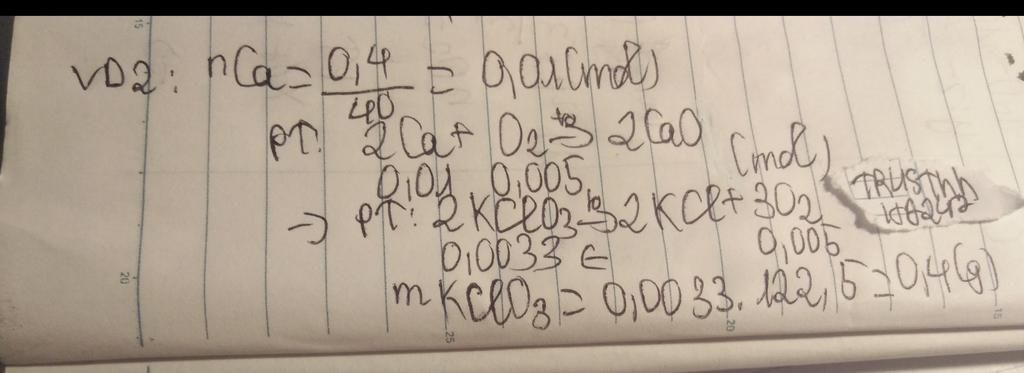 VD2: nCa = 0,4/40 = 0,01 (mol)
PT: 2Ca + O2 t°→ 2CaO
0,01 0,005 (mol)
→ PT: 2KClO3 t°→ 2KCl + 3O2
0,0033 ← 0,005
mKClO3 = 0,0033 . 122,5 = 0,4 (g)
15
20
25
20
15